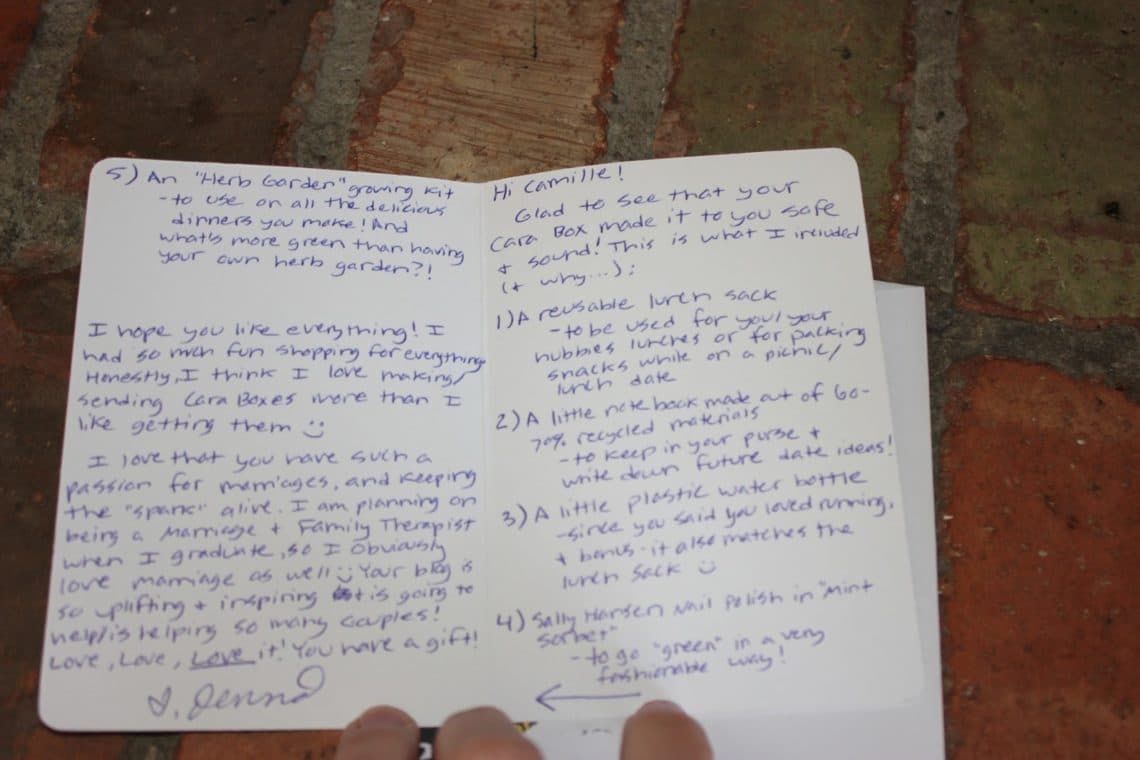 Hi Camille!
Glad to see that your
Cara Box made it to you safe
+ sound! This is what I included
(+ why...):
1) A reusable lunch sack
- to be used for you/your
hubbies lunches or for packing
snacks while on a picnic/
lunch date
2) A little note book made out of 60-
70% recycled materials
- to keep in your purse +
write down future date ideas!
3) A little plastic water bottle
- since you said you loved running,
+ bonus - it also matches the
lunch sack ☺
4) Sally Hansen Nail Polish in "Mint
Sorbet"
- to go "green" in a very
fashionable way!
←
5) An "Herb Garden" growing kit
- to use on all the delicious
dinners you make! And
what's more green than having
your own herb garden?!
I hope you like everything! I
had so much fun shopping for everything
Honestly, I think I love making/
sending Cara Boxes more than I
like getting them ☺
I love that you have such a
passion for marriages, and keeping
the "spark" alive. I am planning on
being a Marriage + Family Therapist
when I graduate, so I obviously
love marriage as well ☺ Your blog is
so uplifting + inspiring it is going to
help/is helping so many couples!
Love, Love, Love it! You have a gift!
♡, Jenna